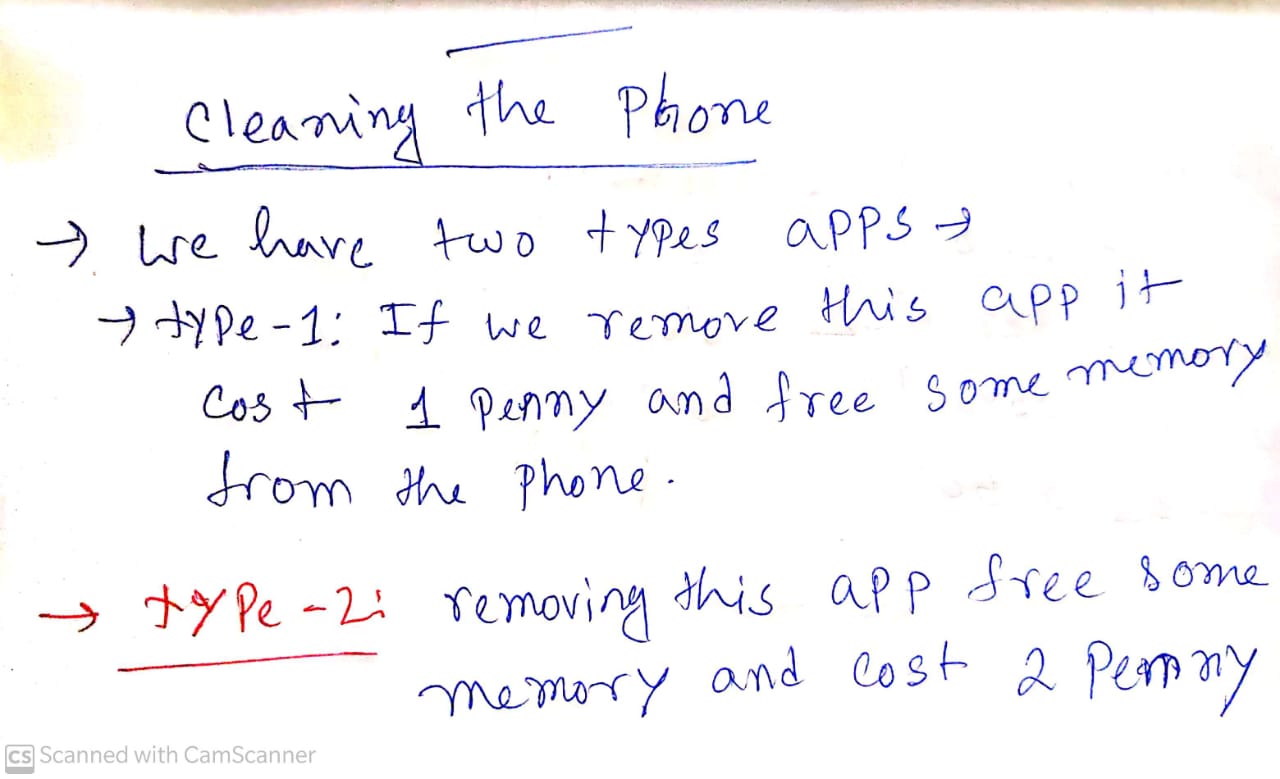 Cleaning the Phone
→ We have two types apps →
→ type-1: If we remove this app it
cost 1 penny and free some memory
from the phone.
→ type-2: removing this app free some
memory and cost 2 Penny
CS Scanned with CamScanner